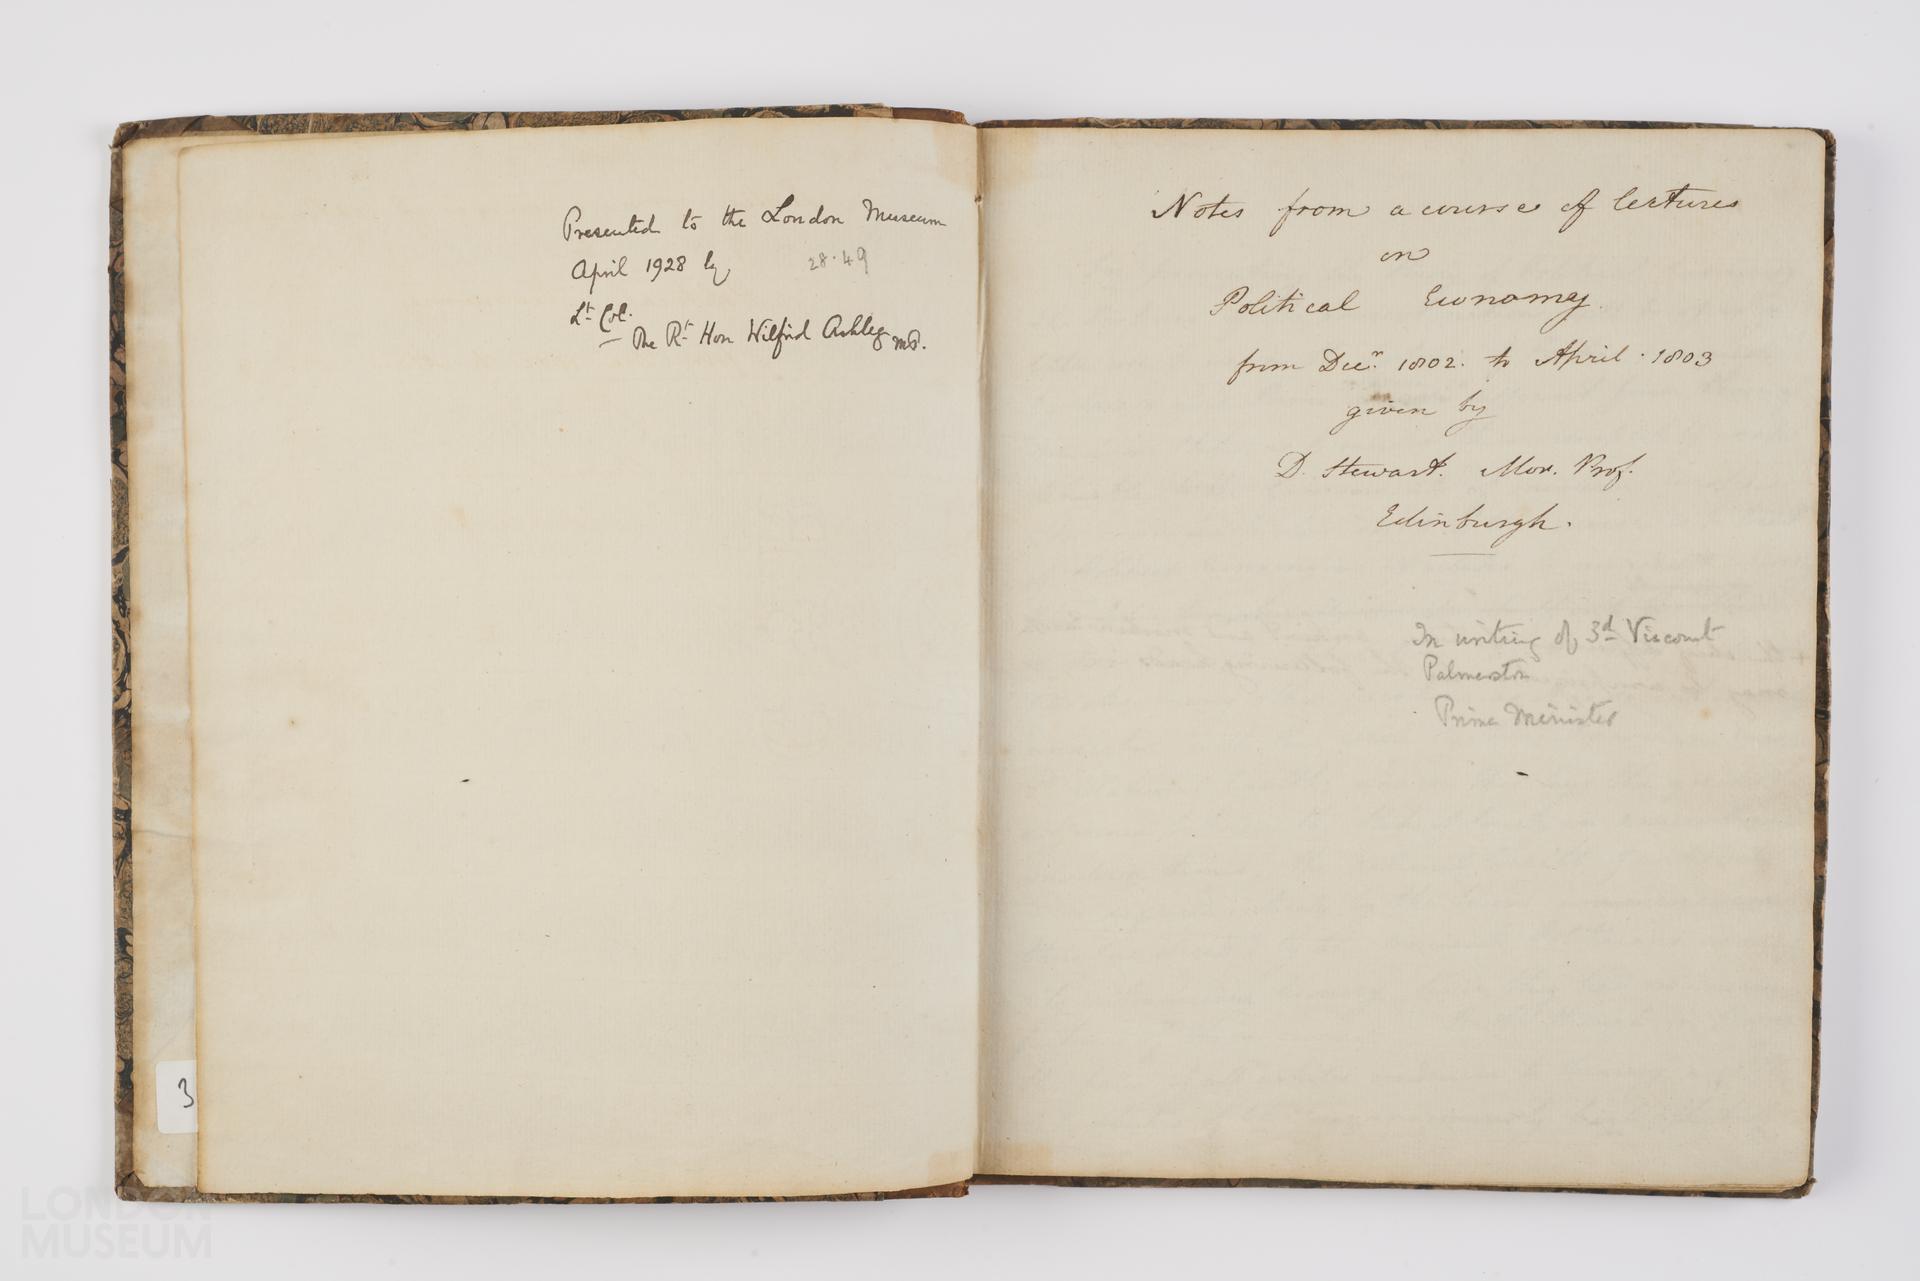 Presented to the London Museum
April 1928 by 28.49
Lt Col.
The Rt Hon Wilfrid Ashley MP.
3
Notes from a course of lectures
on
Political Economy.
from Decr. 1802. to April. 1803
given by
D. Stewart. Mor. Prof.
Edinburgh.
In writing of 3d Viscount
Palmerston
Prime Minister
LONDON
MUSEUM